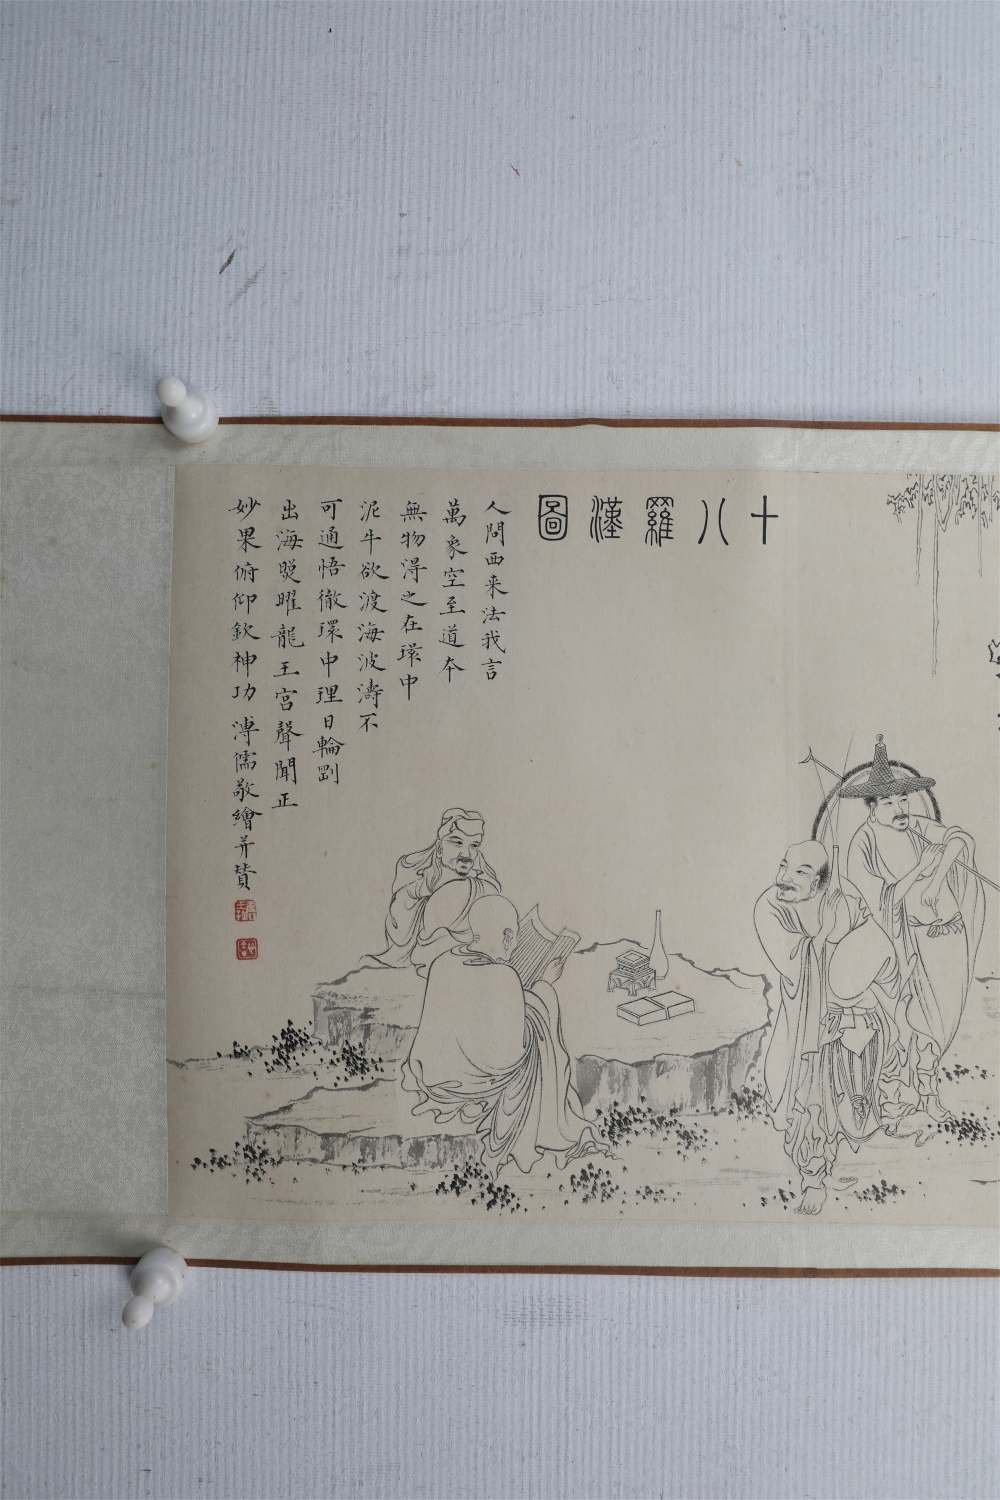 十八羅漢圖
人問西来法我言
萬象空至道本
無物淂之在環中
泥牛欲渡海波濤不
可通悟徹環中理日輪剛
出海晃曜龍王宮聲聞正
妙果俯仰欽神功 溥儒敬繪并贊